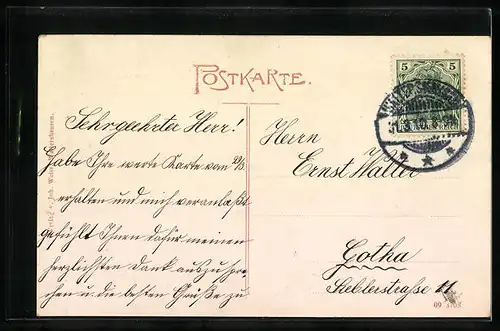 POSTKARTE.
5 5
DEUTSCHES REICH
Sehrgeehrter Herr!
Habe Ihre werte Karte vom 29/8.
erhalten und mich veranlaßt
gefühlt Ihnen dafür meinen
herzlichsten Dank auszuspre-
chen u. die besten Grüße zu
Herrn
Ernst Walter
Gotha
Sieblerstraße 11
09